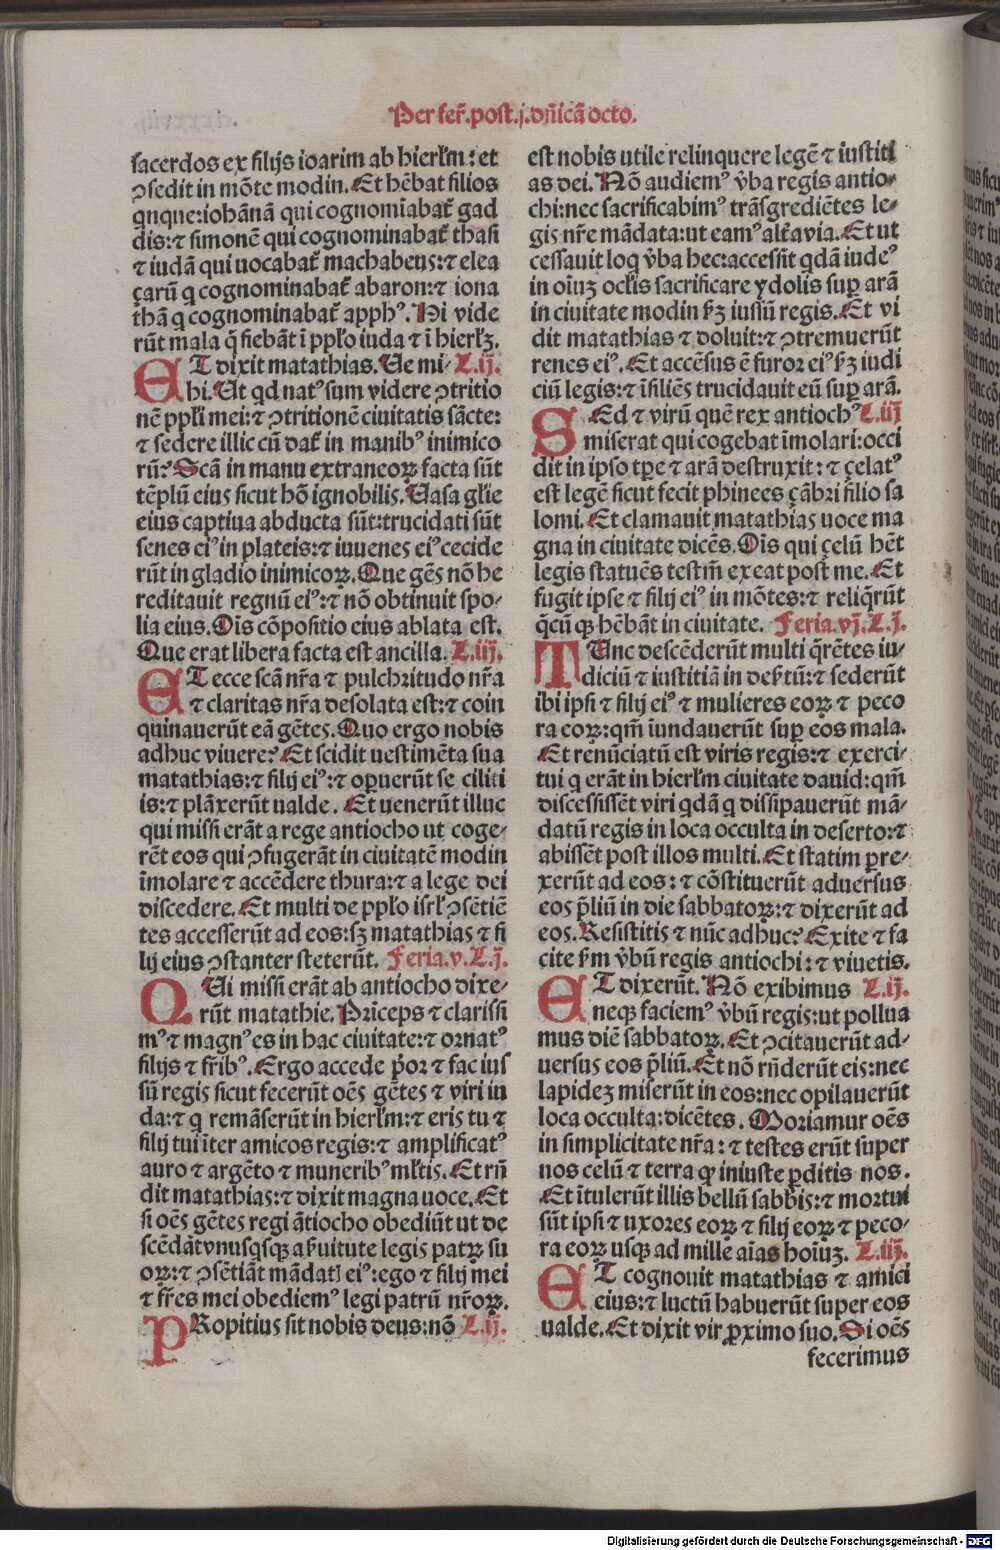 Per fer̄.post.j.dn̄icā octo.
sacerdos ex filijs ioarim ab hierłm: et
ꝯsedit in mōte modin. Et hēbat filios
qnque: iohānā qui cognomiabat̄ gad
dis: ⁊ simonē qui cognominabat̄ thasi
⁊ iudā qui uocabat̄ machabeus: ⁊ elea
çarū q cognominabat̄ abaron: ⁊ iona
thā q cognominabat̄ apphꝰ. Hi vide
rūt mala q̄ fiebāt ī ppło iuda ⁊ ī hierłꝫ.
ET dixit matathias. Ue mi- L.ij.
hi. Ut qd natꝰ sum videre ꝯtritio
nē ppłi mei: ⁊ ꝯtritionē ciuitatis sācte:
⁊ sedere illic cū dat̄ in manibꝰ inimico
rū? Scā in manu extraneoꝝ facta sūt
tēplū eius sicut hō ignobilis. Uasa glīe
eius captiua abducta sūt: trucidati sūt
senes eiꝰ in plateis: ⁊ iuuenes eiꝰ cecide
rūt in gladio inimicoꝝ. Que gēs nō he
reditauit regnū eiꝰ: ⁊ nō obtinuit spo-
lia eius. Oīs cōpositio eius ablata est.
Que erat libera facta est ancilla. L.iij.
ET ecce scā nr̄a ⁊ pulchritudo nr̄a
⁊ claritas nr̄a desolata est: ⁊ coin
quinauerūt eā gētes. Quo ergo nobis
adhuc viuere? Et scidit uestimēta sua
matathias: ⁊ filij eiꝰ: ⁊ oꝑuerūt se cilici
is: ⁊ plāxerūt ualde. Et uenerūt illuc
qui missi erāt a rege antiocho ut coge-
rēt eos qui ꝯfugerāt in ciuitatē modin
īmolare ⁊ accēdere thura: ⁊ a lege dei
discedere. Et multi de ppło isrł ꝯsētiē
tes accesserūt ad eos: sꝫ matathias ⁊ fi
lij eius ꝯstanter steterūt. Feria.v.L.j.
QUi missi erāt ab antiocho dixe-
rūt matathie. Prīceps ⁊ clarissi
mꝰ ⁊ magnꝰ es in hac ciuitate: ⁊ ornatꝰ
filijs ⁊ fr̄ibꝰ. Ergo accede p̄or ⁊ fac ius
sū regis sicut fecerūt oēs gētes ⁊ viri iu
da: ⁊ q remāserūt in hierłm: ⁊ eris tu ⁊
filij tui īter amicos regis: ⁊ amplificatꝰ
auro ⁊ argēto ⁊ muneribꝰ młtis. Et rn̄
dit matathias: ⁊ dixit magna uoce. Et
si oēs gētes regi ātiocho obediūt ut de
scēdāt vnusqsqꝫ a ẜuitute legis patꝝ su
oꝝ: ⁊ ꝯsētiāt mādatꝭ eiꝰ: ego ⁊ filij mei
⁊ fr̄es mei obediemꝰ legi patrū nr̄oꝝ.
PRopitius sit nobis deus: nō L.ij.
est nobis utile relinquere legē ⁊ iustiti
as dei. Nō audiemꝰ v̄ba regis antio-
chi: nec sacrificabimꝰ trāsgrediētes le-
gis nr̄e mādata: ut eamꝰ alt̄a via. Et ut
cessauit loq v̄ba hec: accessit qdā iudeꝰ
in oīuꝫ oclis sacrificare ydolis suꝑ arā
in ciuitate modin ẜꝫ iussū regis. Et vi
dit matathias ⁊ doluit: ⁊ ꝯtremuerūt
renes eiꝰ. Et accēsus ē furor eiꝰ ẜꝫ iudi
ciū legis: ⁊ īsiliēs trucidauit eū suꝑ arā.
SEd ⁊ virū quē rex antiochꝰ L.iij
miserat qui cogebat īmolari: occi
dit in ipso tꝑe ⁊ arā destruxit: ⁊ çelatꝰ
est legē sicut fecit phinees çābri filio sa
lomi. Et clamauit matathias uoce ma
gna in ciuitate dicēs. Oīs qui çelū hēt
legis statuēs testm̄ exeat post me. Et
fugit ipse ⁊ filij eiꝰ in mōtes: ⁊ reliq̄rūt
q̄cū qꝫ hēbāt in ciuitate. Feria.vj.L.j.
TUnc descēderūt multi q̄rētes iu-
diciū ⁊ iustitiā in deẜtū: ⁊ sederūt
ibi ipsi ⁊ filij eiꝰ ⁊ mulieres eoꝝ ⁊ peco
ra eoꝝ: qm̄ iundauerūt suꝑ eos mala.
Et renūciatū est viris regis: ⁊ exerci-
tui q erāt in hierłm ciuitate dauid: qm̄
discessissēt viri qdā q dissipauerūt mā-
datū regis in loca occulta in deserto: ⁊
abissēt post illos multi. Et statim ꝑre-
xerūt ad eos: ⁊ cōstituerūt aduersus
eos p̄liū in die sabbatoꝝ: ⁊ dixerūt ad
eos. Resistitis ⁊ nūc adhuc? Exite ⁊ fa
cite ẜm v̄bū regis antiochi: ⁊ viuetis.
ET dixerūt. Nō exibimus L.ij.
neqꝫ faciemꝰ v̄bū regis: ut pollua
mus diē sabbatoꝝ. Et ꝯcitauerūt ad-
uersus eos p̄liū. Et nō rn̄derūt eis: nec
lapideꝫ miserūt in eos: nec opilauerūt
loca occulta: dicētes. Moriamur oēs
in simplicitate nr̄a: ⁊ testes erūt super
nos celū ⁊ terra qꝫ iniuste ꝑditis nos.
Et ītulerūt illis bellū sabb̄is: ⁊ mortui
sūt ipsi ⁊ uxores eoꝝ ⁊ filij eoꝝ ⁊ peco-
ra eoꝝ usqꝫ ad mille aīas hoīuꝫ. L.iij.
ET cognouit matathias ⁊ amici
eius: ⁊ luctū habuerūt super eos
ualde. Et dixit vir ꝓximo suo. Si oēs
fecerimus
Digitalisierung gefördert durch die Deutsche Forschungsgemeinschaft - DFG